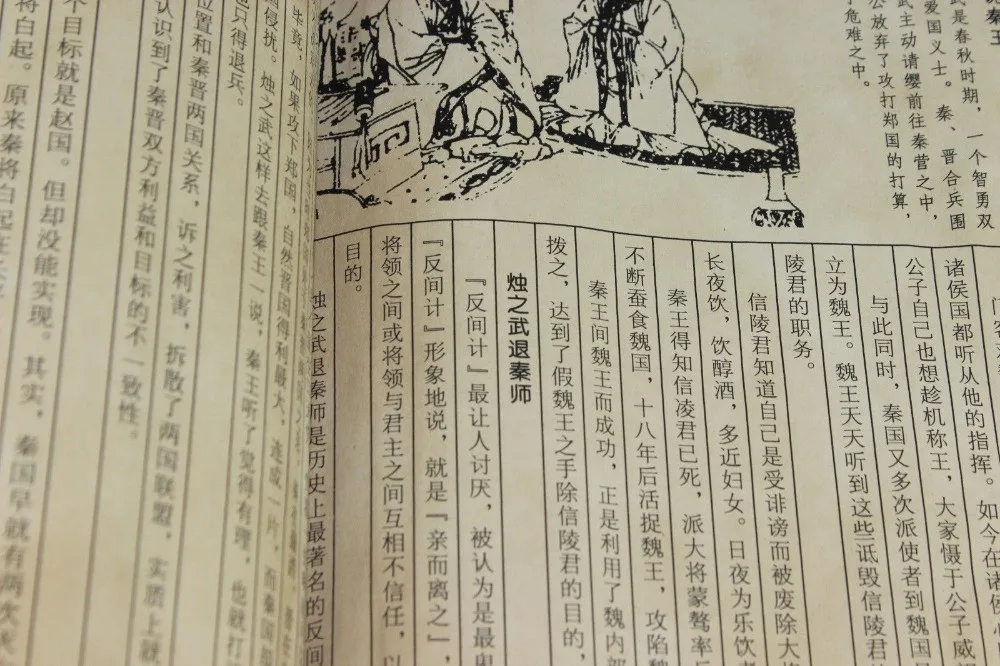 说秦王
武是春秋时期，一个智勇双
爱国义士。秦、晋合兵围
武主动请缨前往秦营之中，
公放弃了攻打郑国的打算，
了危难之中。
诸侯国都听从他的指挥。如今在诸侯
公子自己也想趁机称王，大家慑于公子威
与此同时，秦国又多次派使者到魏国
立为魏王。魏王天天听到这些诋毁信陵君
陵君的职务。
信陵君知道自己是受诽谤而被废除大
长夜饮，饮醇酒，多近妇女。日夜为乐饮者
秦王得知信凌君已死，派大将蒙骜率兵
不断蚕食魏国，十八年后活捉魏王，攻陷魏
秦王间魏王而成功，正是利用了魏内部
拨之，达到了假魏王之手除信陵君的目的，
烛之武退秦师
『反间计』最让人讨厌，被认为是最卑
『反间计』形象地说，就是『亲而离之』，
将领之间或将领与君主之间互相不信任，以
目的。
烛之武退秦师是历史上最著名的反间
毕竟，如果攻下郑国，自然晋国得利最大，连成一片，而秦国
侵扰。烛之武这样去跟秦王一说，秦王听了觉得有理，也就打
也只得退兵。
位置和秦晋两国关系，诉之利害，拆散了两国联盟，实质上就
认识到了秦晋双方利益和目标的不一致性。
个目标就是赵国。但却没能实现。其实，秦国早就有两次
将白起。原来秦将白起在